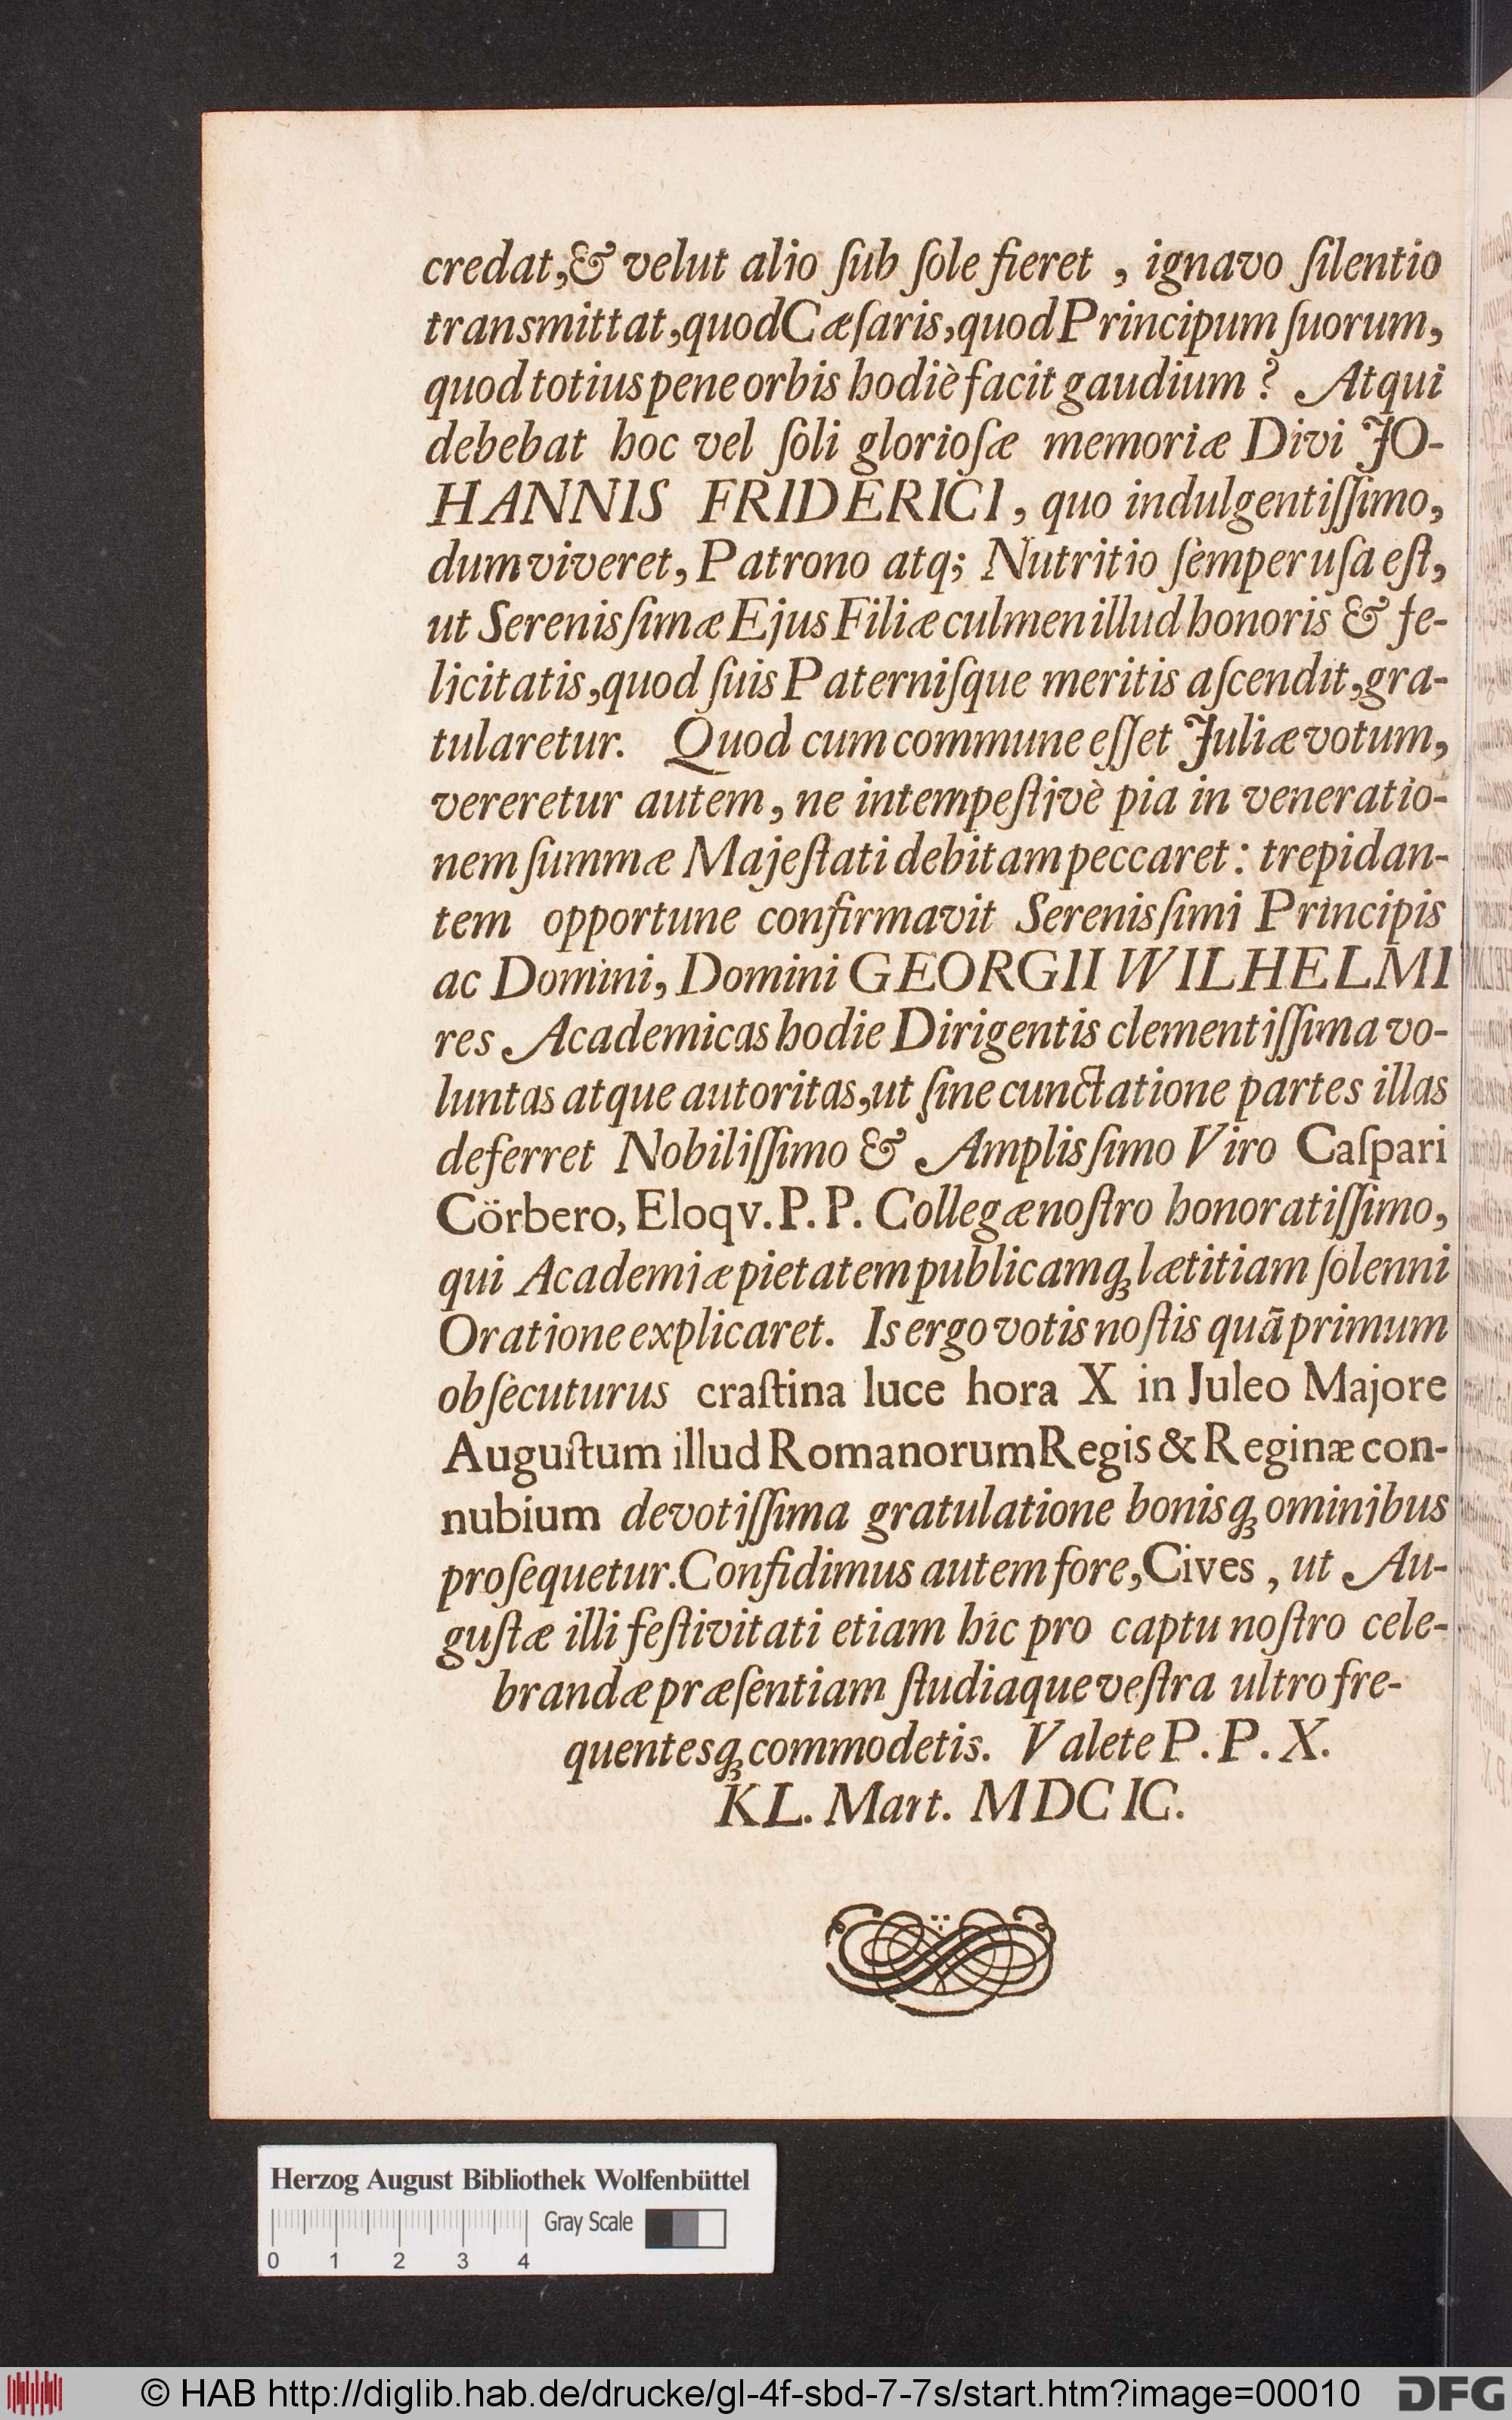 credat, & velut alio ſub ſole fieret , ignavo ſilentio
transmittat, quod Cæſaris, quod Principum ſuorum,
quod totius pene orbis hodiè facit gaudium ? Atqui
debebat hoc vel ſoli glorioſæ memoriæ Divi JO-
HANNIS FRIDERICI, quo indulgentiſſimo,
dum viveret, Patrono atq; Nutritio ſemper uſa eſt,
ut Serenisſimæ Ejus Filiæ culmen illud honoris & fe-
licitatis, quod ſuis Paterniſque meritis aſcendit, gra-
tularetur. Quod cum commune eſſet Juliæ votum,
vereretur autem, ne intempeſtivè pia in veneratio-
nem ſummæ Majeſtati debitam peccaret : trepidan-
tem opportune confirmavit Serenisſimi Principis
ac Domini, Domini GEORGII WILHELMI
res Academicas hodie Dirigentis clementiſſima vo-
luntas atque autoritas, ut ſine cunctatione partes illas
deferret Nobiliſſimo & Amplisſimo Viro Caſpari
Cörbero, Eloqv. P. P. Collegæ noſtro honoratiſſimo,
qui Academiæ pietatem publicamq; lætitiam ſolenni
Oratione explicaret. Is ergo votis noſtis quã primum
obſecuturus craſtina luce hora X in Juleo Majore
Auguſtum illud Romanorum Regis & Reginæ con-
nubium devotiſſima gratulatione bonisq; ominibus
proſequetur. Confidimus autem fore, Cives , ut Au-
guſtæ illi feſtivitati etiam hic pro captu noſtro cele-
brandæ præſentiam ſtudiaque veſtra ultro fre-
quentesq; commodetis. Valete P. P. X.
KL. Mart. MDC IC.
Herzog August Bibliothek Wolfenbüttel
Gray Scale
0 1 2 3 4
© HAB http://diglib.hab.de/drucke/gl-4f-sbd-7-7s/start.htm?image=00010 DFG